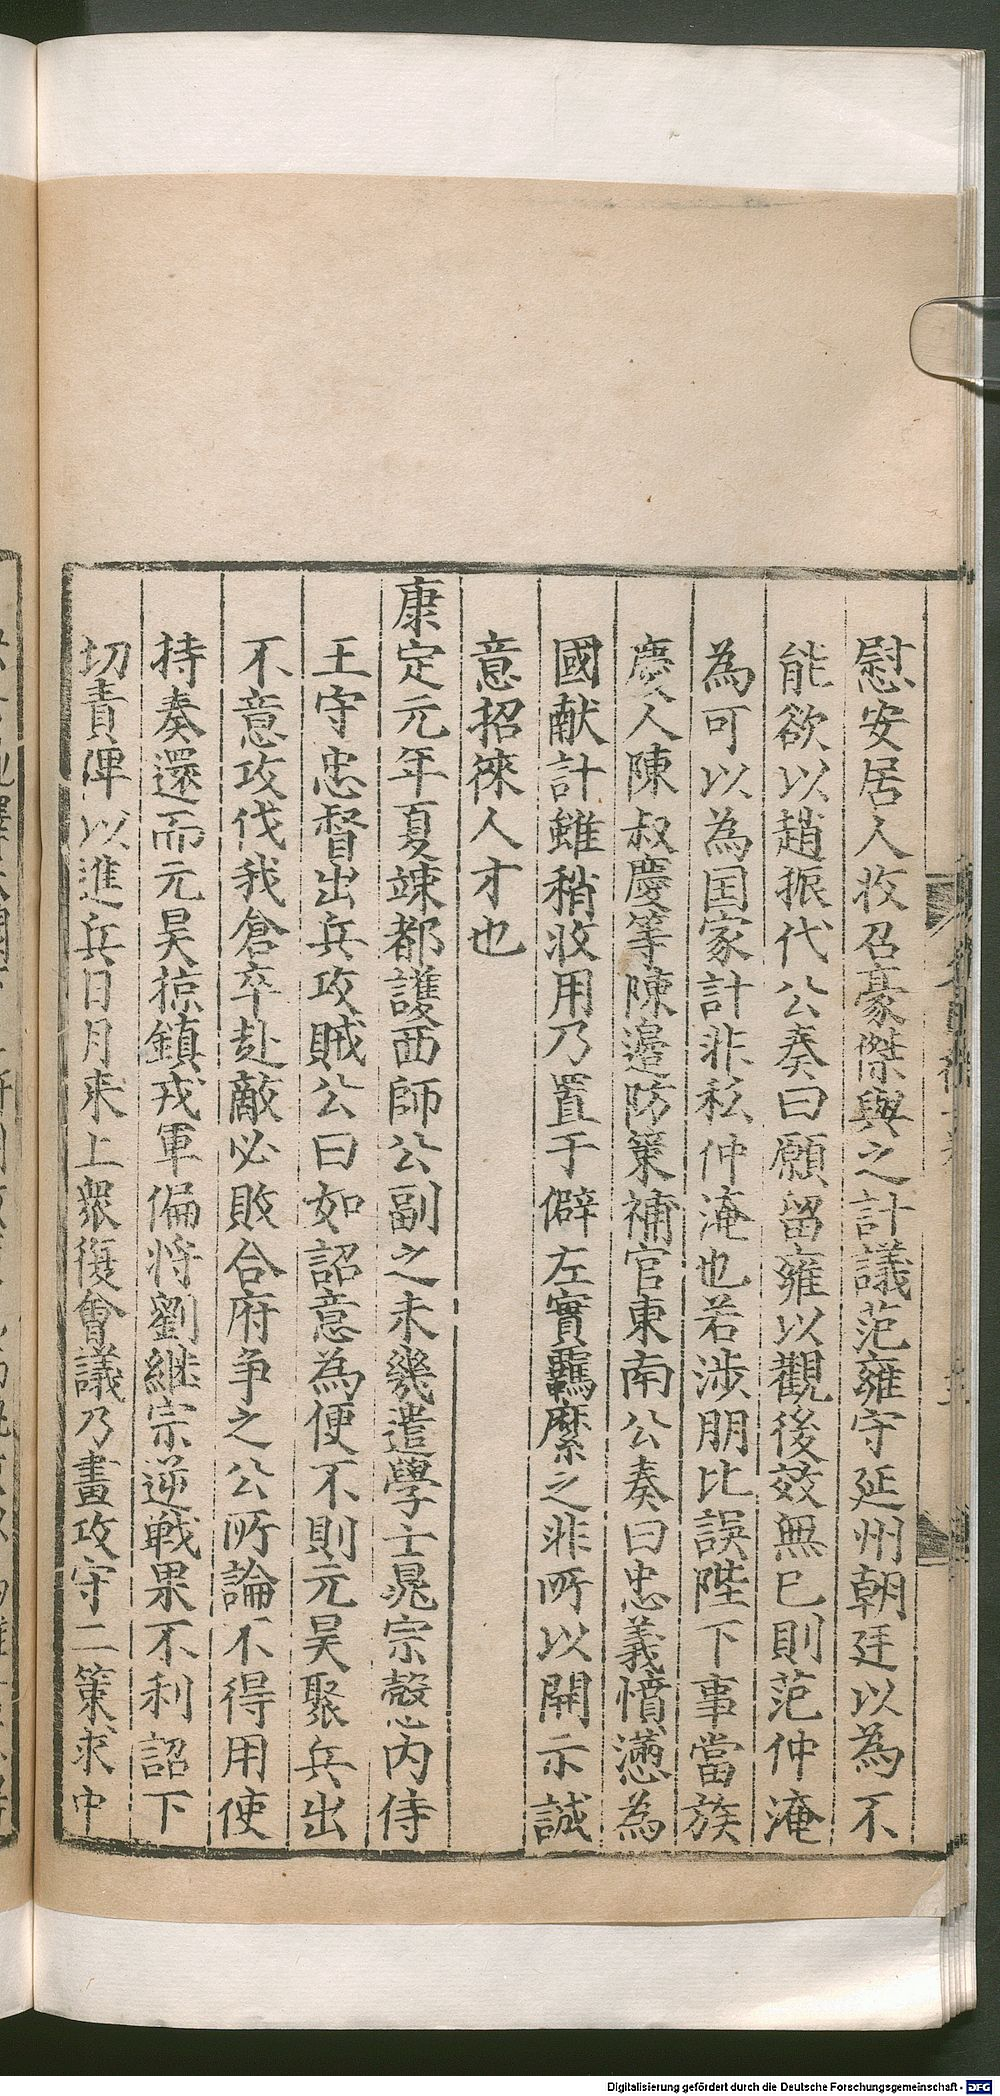 慰安居人收召豪傑與之計議范雍守延州朝廷以為不
能欲以趙振代公奏曰願留雍以觀後效無已則范仲淹
為可以為国家計非私仲淹也若涉朋比誤陛下事當族
慶人陳叔慶等陳邊防策補官東南公奏曰忠義憤懣為
國献計雖稍收用乃置于僻左實羈縻之非所以開示誠
意招徠人才也
康定元年夏竦都護西師公副之未幾遣學士晁宗愨內侍
王守忠督出兵攻賊公曰如詔意為便不則元昊聚兵出
不意攻伐我倉卒赴敵必敗合府争之公所論不得用使
持奏還而元昊掠鎮戎軍偏將劉継宗逆戦果不利詔下
切責俾以進兵日月来上衆復會議乃畫攻守二策求中
Digitalisierung gefördert durch die Deutsche Forschungsgemeinschaft - DFG